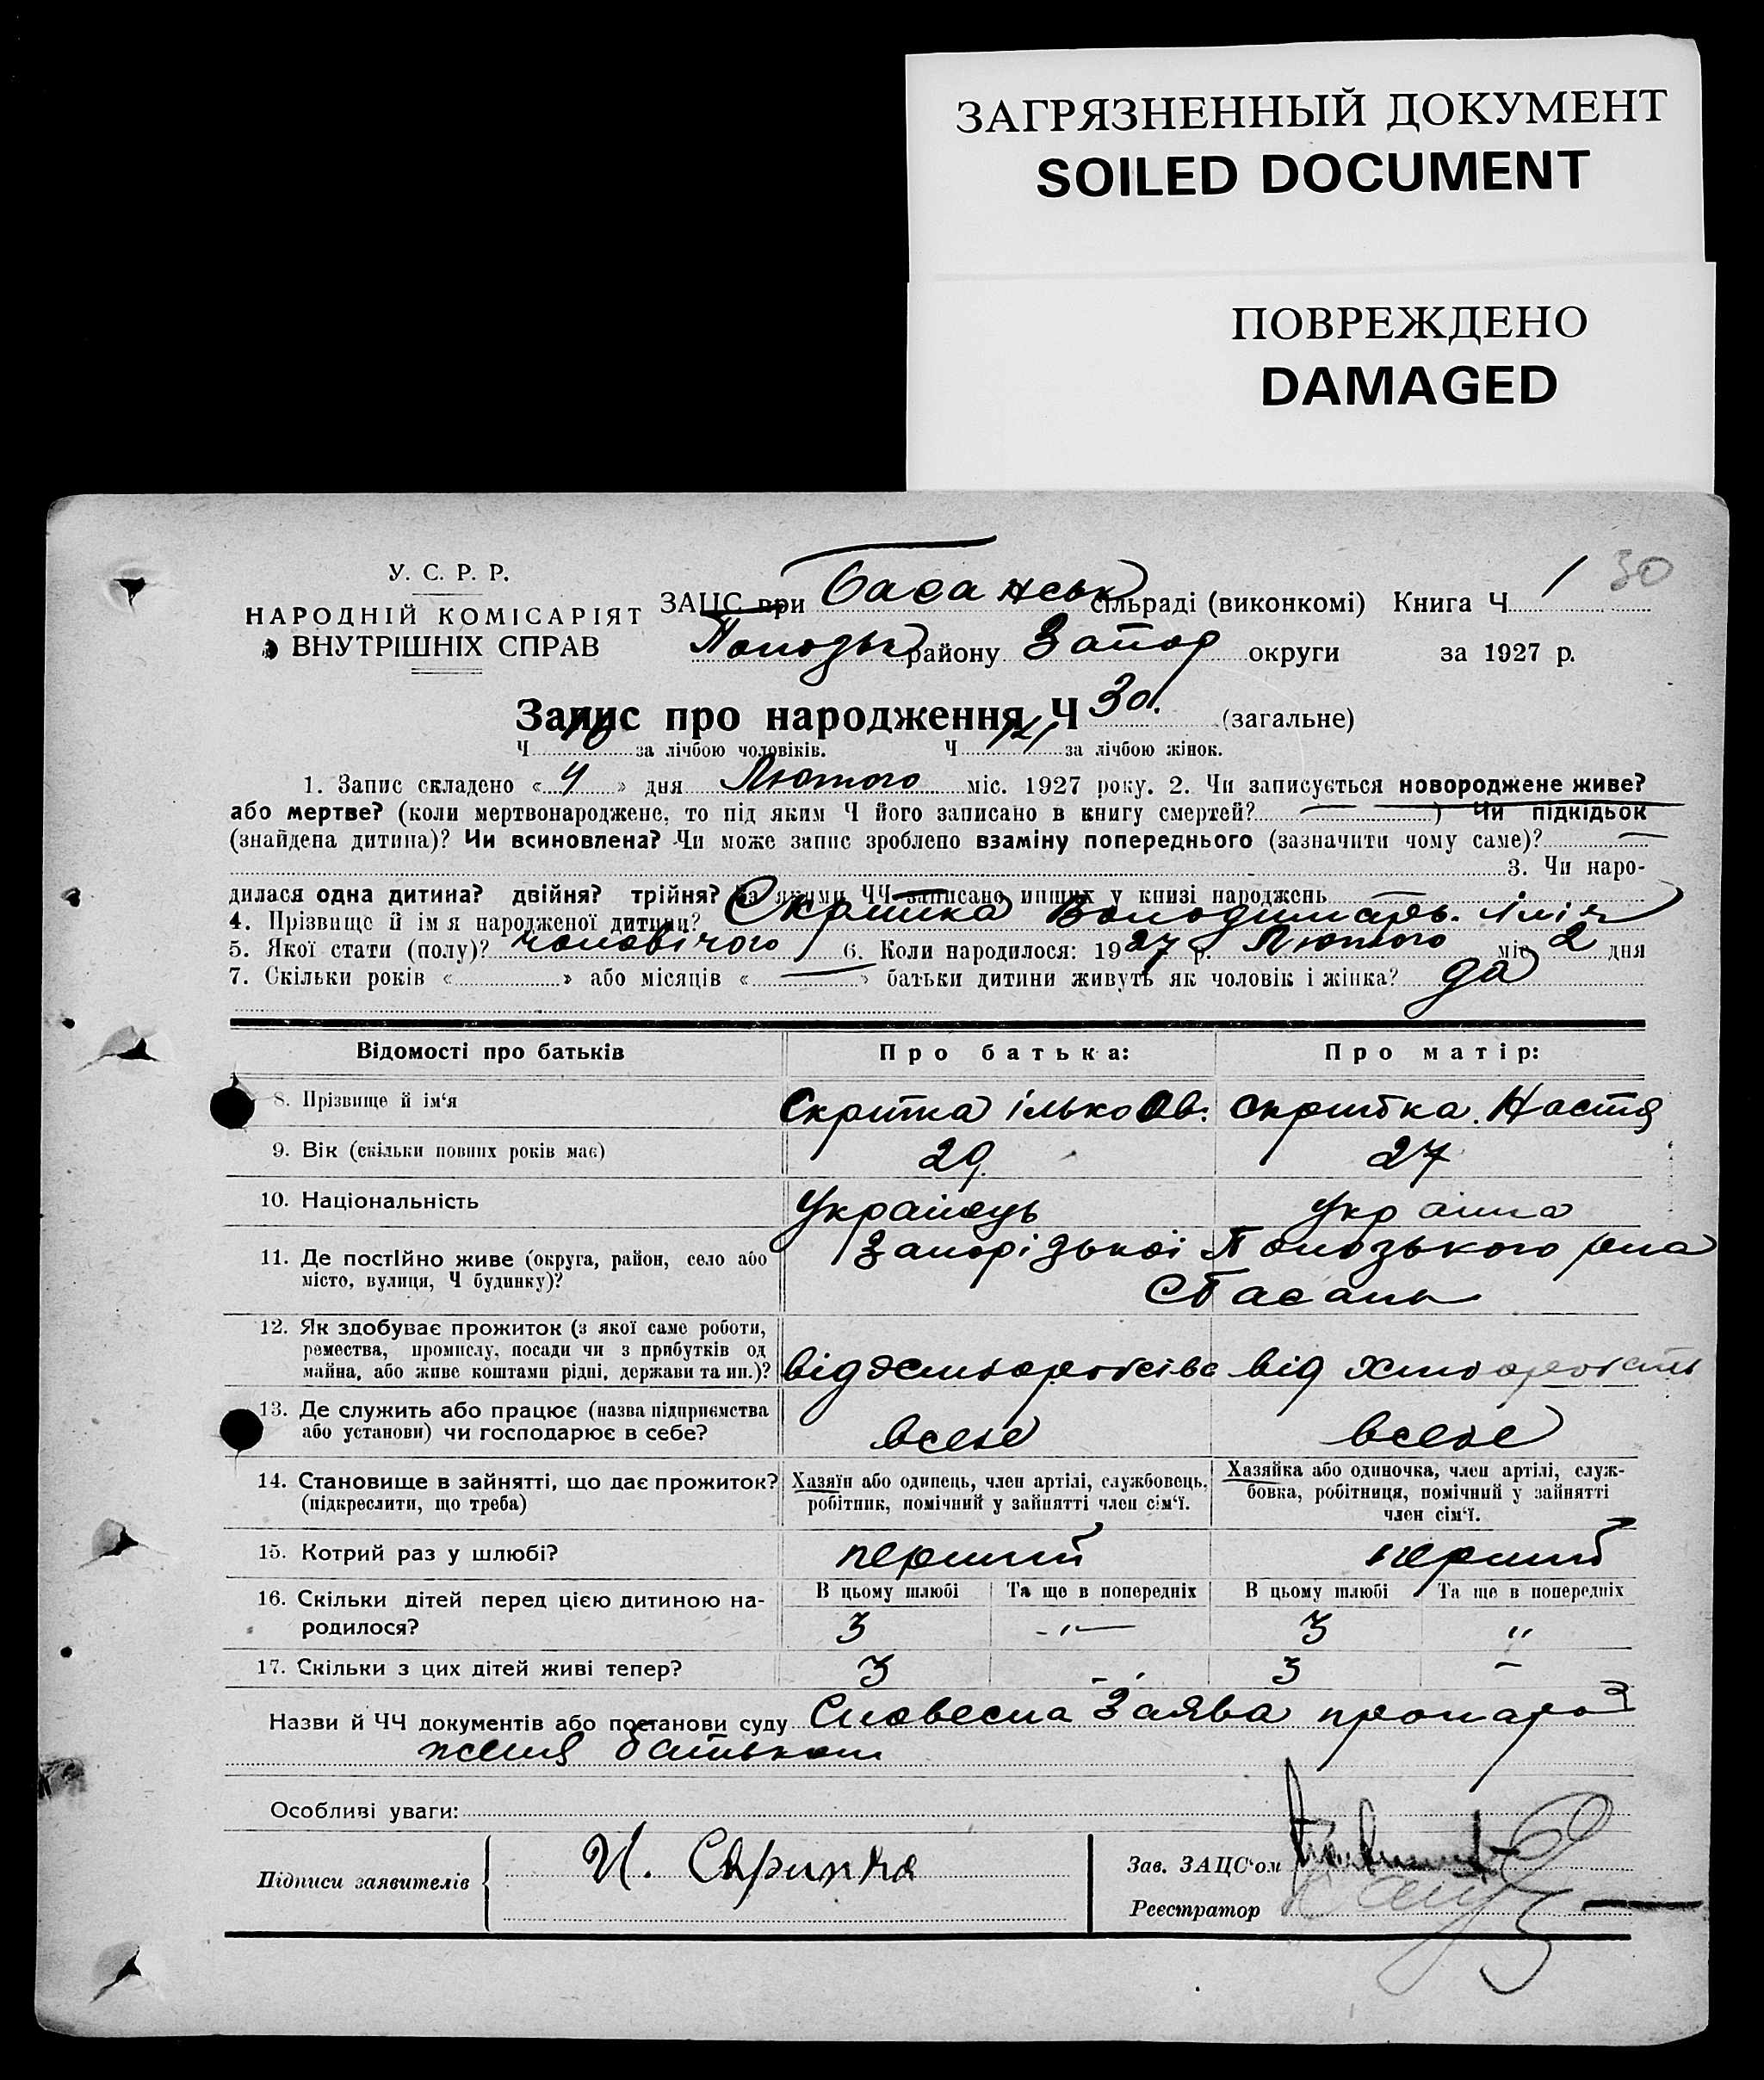 ЗАГРЯЗНЕННЫЙ ДОКУМЕНТ
SOILED DOCUMENT
ПОВРЕЖДЕНО
DAMAGED
30
У. С. Р. Р.
НАРОДНІЙ КОМІСАРІЯТ
ВНУТРІШНІХ СПРАВ
ЗАЦС при Басанськ сільраді (виконкомі) Книга Ч. 1
Пологськ району Запор округи за 1927 р.
Запис про народження Ч 30. (загальне)
Ч за лічбою чоловіків. Ч за лічбою жінок.
1. Запис складено « 4 » дня Лютого міс. 1927 року. 2. Чи записується новороджене живе?
або мертве? (коли мертвонароджене, то під яким Ч його записано в книгу смертей? —) Чи підкідьок
(знайдена дитина)? Чи всиновлена? Чи може запис зроблено взаміну попереднього (зазначити чому саме)? —
3. Чи наро-
дилася одна дитина? двійня? трійня? За якими ЧЧ записано инших у книзі народжень
4. Прізвище й ім я народженої дитини? Скрипка Володимеръ. Іліч
5. Якої стати (полу)? чоловічого 6. Коли народилося: 1927 р. Лютого міс 2 дня
7. Скільки років « » або місяців « — » батьки дитини живуть як чоловік і жінка? да
Відомості про батьків Про батька: Про матір:
8. Прізвище й ім‘я Скрипка ілько Ов. Скрипка. Настя
9. Вік (скільки повних років має) 29 27
10. Національність Українець Україна
11. Де постійно живе (округа, район, село або Запорізької Пологського рна
місто, вулиця, Ч будинку)? С Басань
12. Як здобуває прожиток (з якої саме роботи,
ремества, промислу, посади чи з прибутків од
майна, або живе коштами рідні, держави та ин.)? від хліборобства від хліборобства
13. Де служить або працює (назва підприємства
або установи) чи господарює в себе? всебе всебе
14. Становище в зайнятті, що дає прожиток? Хазяїн або одинець, член артілі, службовець, Хазяйка або одиночка, член артілі, служ-
(підкреслити, що треба) робітник, помічний у зайнятті член сім‘ї. бовка, робітниця, помічний у зайнятті
член сім‘ї.
15. Котрий раз у шлюбі? перший перший
16. Скільки дітей перед цією дитиною на- В цьому шлюбі Та ще в попередніх В цьому шлюбі Та ще в попередніх
родилося? 3 -"— 3 "
17. Скільки з цих дітей живі тепер? 3 - 3 –
Назви й ЧЧ документів або постанови суду Словесна Заява пронаро
ження батьком
Особливі уваги:
Підписи заявителів И. Скрипка Зав. ЗАЦС‘ом
Реєстратор